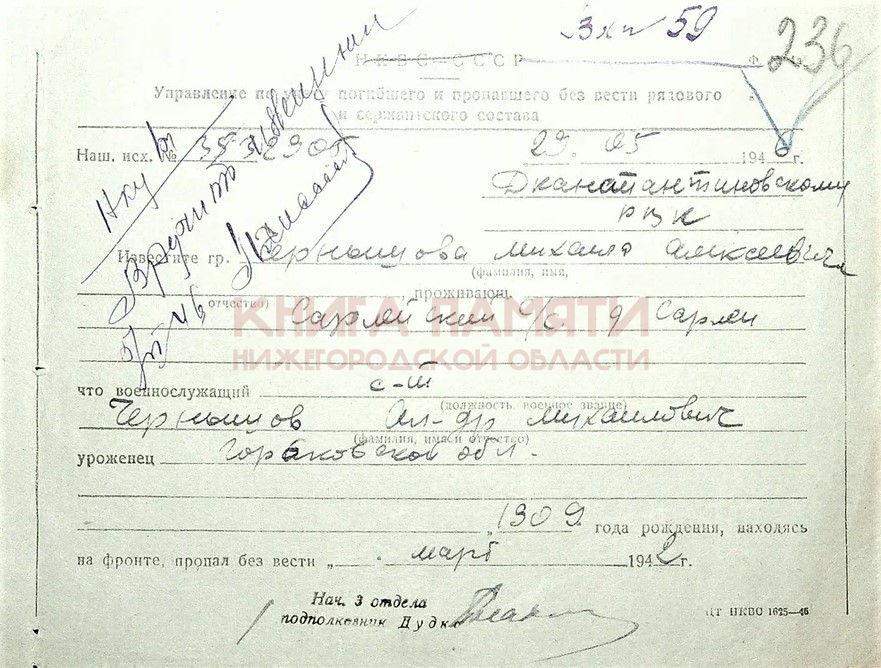 Вхп 59
236
НКВС СССР
Управление по учету погибшего и пропавшего без вести рядового
и сержантского состава
Наш. исх. №
29. 05 1946 г.
Дканстантиновскому
РВК
Известите гр. Чернышова Михаила Алексеевича
(фамилия, имя,
отчество)
, проживающ.
Сарлейский с/с. д Сарлеи
КНИГА ПАМЯТИ
НИЖЕГОРОДСКОЙ ОБЛАСТИ
что военнослужащий с-т
(должность, военное звание)
Чернышов Ал-др Михаилович
(фамилия, имя и отчество)
уроженец Горьковской обл.
1909 года рождения, находясь
на фронте, пропал без вести „ март 1942 г.
Нач. 3 отдела
подполковник Дудко
ЦТ НКВС 1625—46
Вручить извещении
5/VI 46